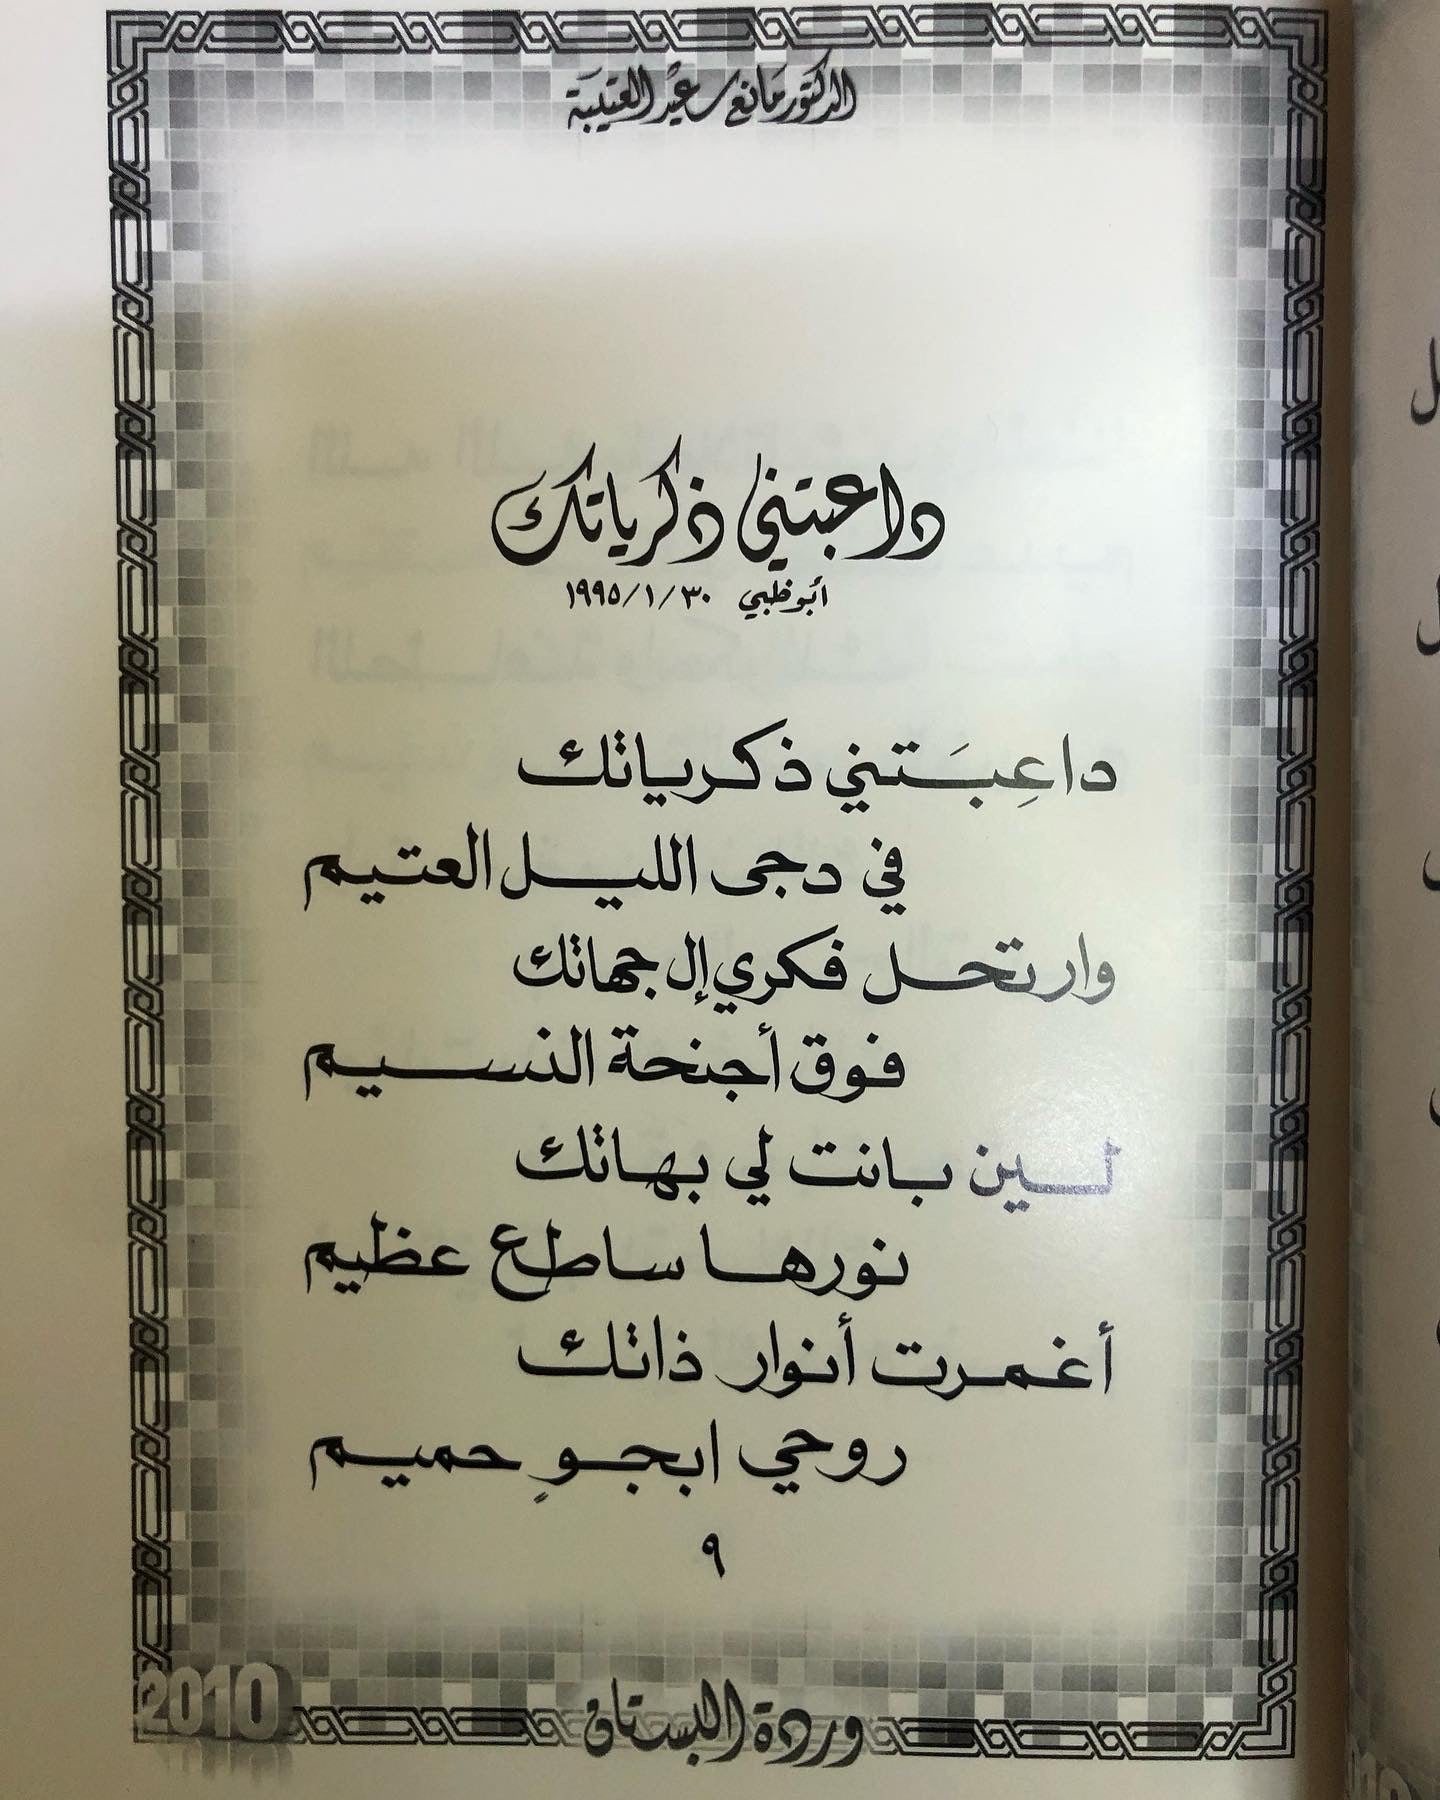 الدكتور مانع سعيد العتيبة
داعبتني ذكرياتك
أبوظبي ٣٠/١/١٩٩٥
داعِبَتني ذكرياتك
في دجى الليل العتيم
وارتحل فكري إل جهاتك
فوق أجنحة النسيم
لين بانت لي بهاتك
نورها ساطع عظيم
أغمرت أنوار ذاتك
روحي ابجوٍ حميم
٩
وردة البستان
2010